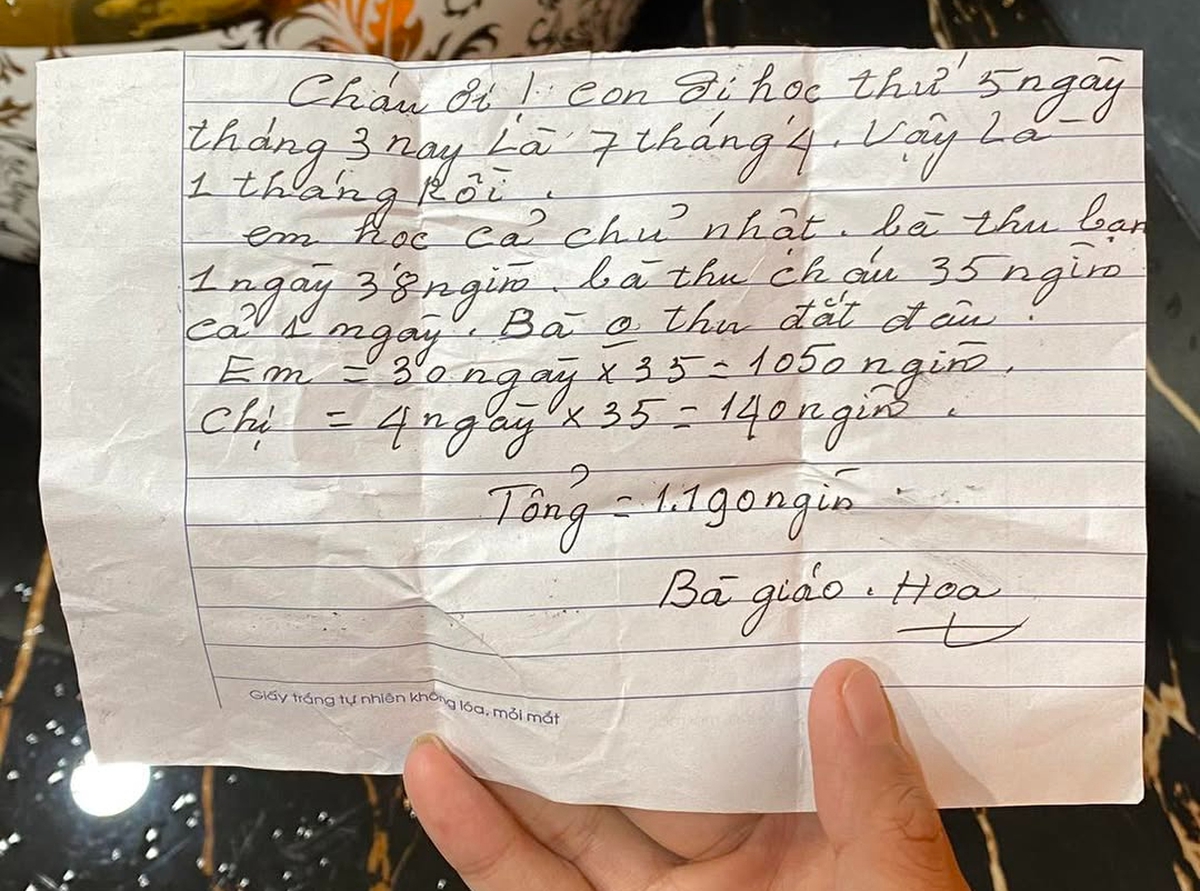 Cháu ơi! con đi học thứ 5 ngày
tháng 3 nay là 7 tháng 4. Vậy là
1 tháng Rồi.
em học cả chủ nhật. bà thu bạn
1 ngày 38 ngìn. bà thu cháu 35 ngìn
cả 1 ngày. Bà o thu đắt đâu.
Em = 30 ngày x 35 = 1050 ngìn.
Chị = 4 ngày x 35 = 140 ngìn.
Tổng = 1.190 ngìn
Bà giáo. Hoa
Giấy trắng tự nhiên không lóa, mỏi mắt